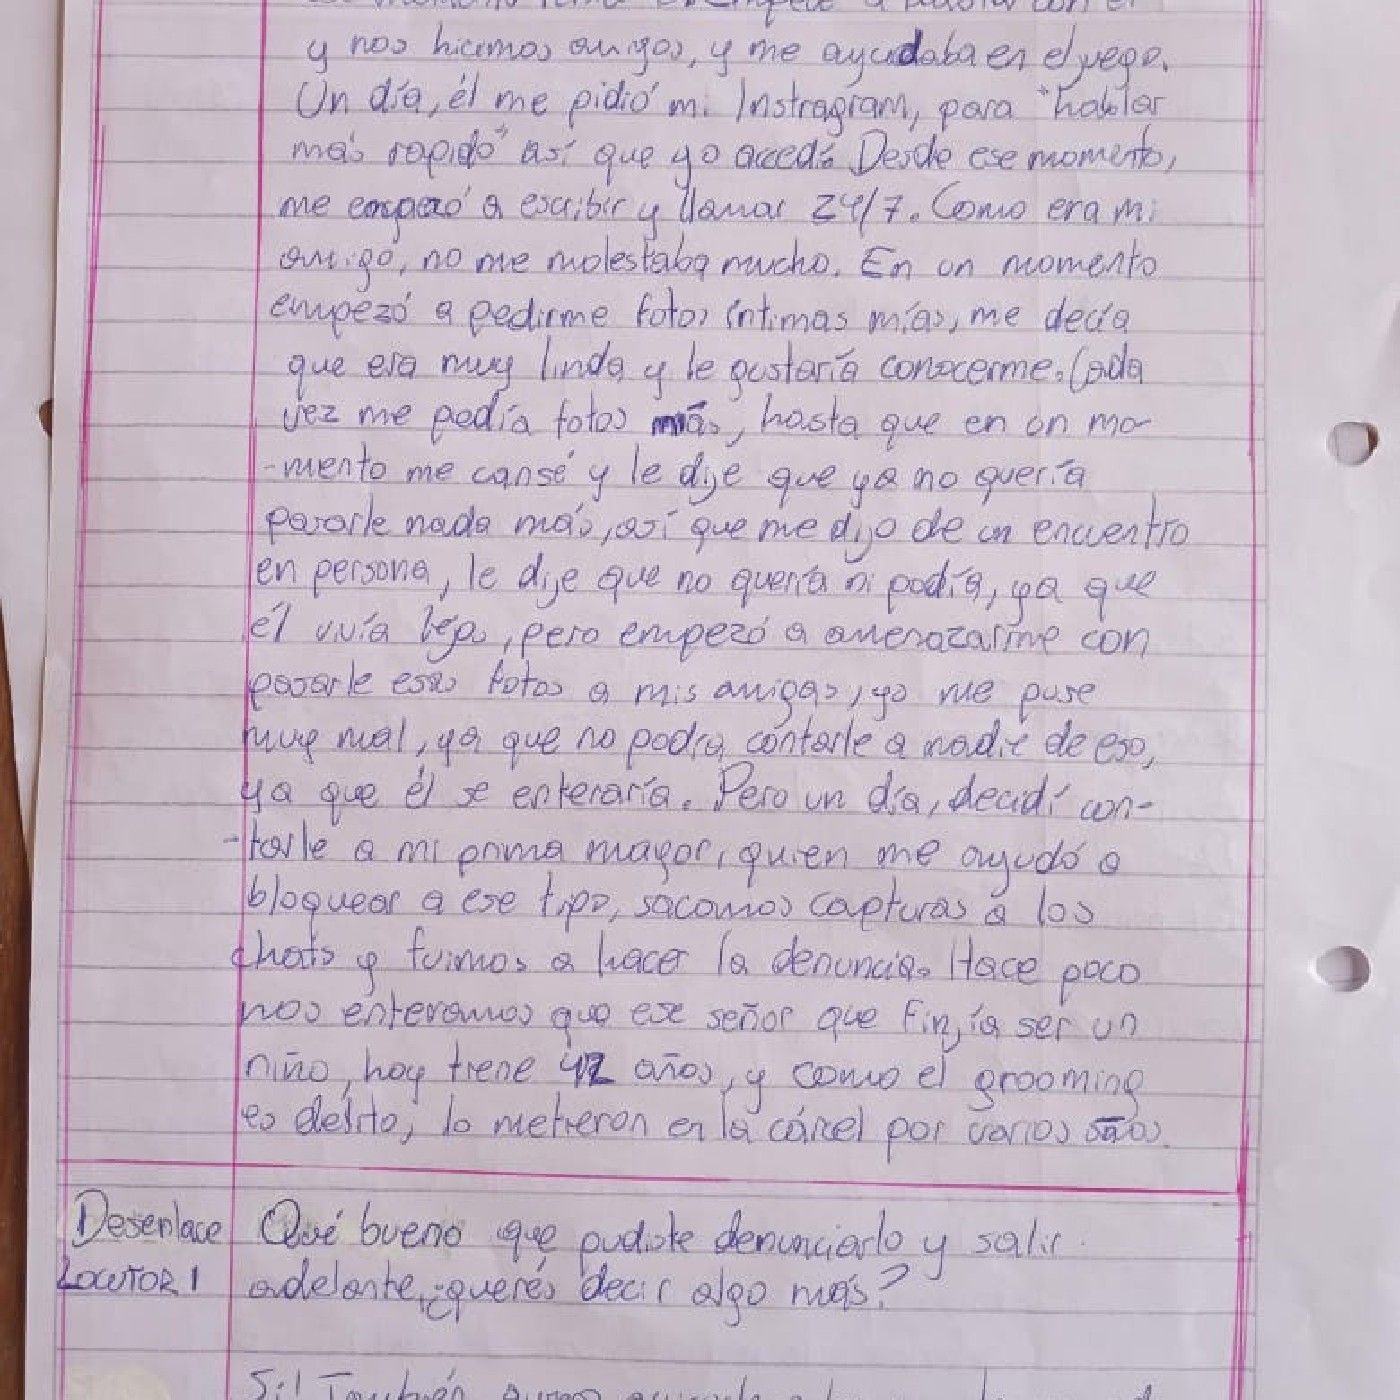 y nos hicimos amigos, y me ayudaba en el juego.
Un día, él me pidió mi Instragram, para "hablar
más rapido" así que yo accedí. Desde ese momento,
me empezó a escribir y llamar 24/7. Como era mi
amigo, no me molestaba mucho. En un momento
empezó a pedirme fotos íntimas mías, me decía
que era muy linda y le gustaría conocerme. Cada
vez me pedía fotos más, hasta que en un mo-
-mento me cansé y le dije que ya no quería
pasarle nada más, así que me dijo de un encuentro
en persona, le dije que no quería ni podía, ya que
él vivía lejos, pero empezó a amenazarme con
pasarle esas fotos a mis amigas, yo me puse
muy mal, ya que no podía contarle a nadie de eso,
ya que él se enteraría. Pero un día, decidí con-
-tarle a mi prima mayor, quien me ayudó a
bloquear a ese tipo, sacamos capturas a los
chats y fuimos a hacer la denuncia. Hace poco
nos enteramos que ese señor que fingía ser un
niño, hoy tiene 42 años, y como el grooming
es delito, lo metieron en la cárcel por varios años.
Desenlace Qué bueno que pudiste denunciarlo y salir
LOCUTOR 1 adelante, ¿querés decir algo más?
Si! También